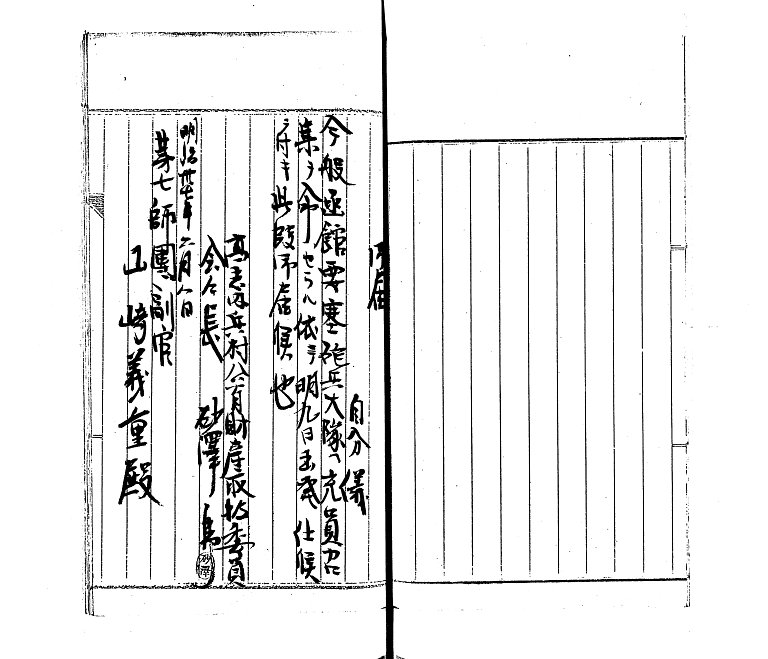 御届
自分儀
今般函館要塞砲兵大隊ヘ充員召
集ヲ命ぜラル依テ明九日出発仕候
付キ此段御届候也
兵村公有財産取扱委員
会々長
砂澤
明治卅七年六月八日
第七師團副官
山崎義重殿